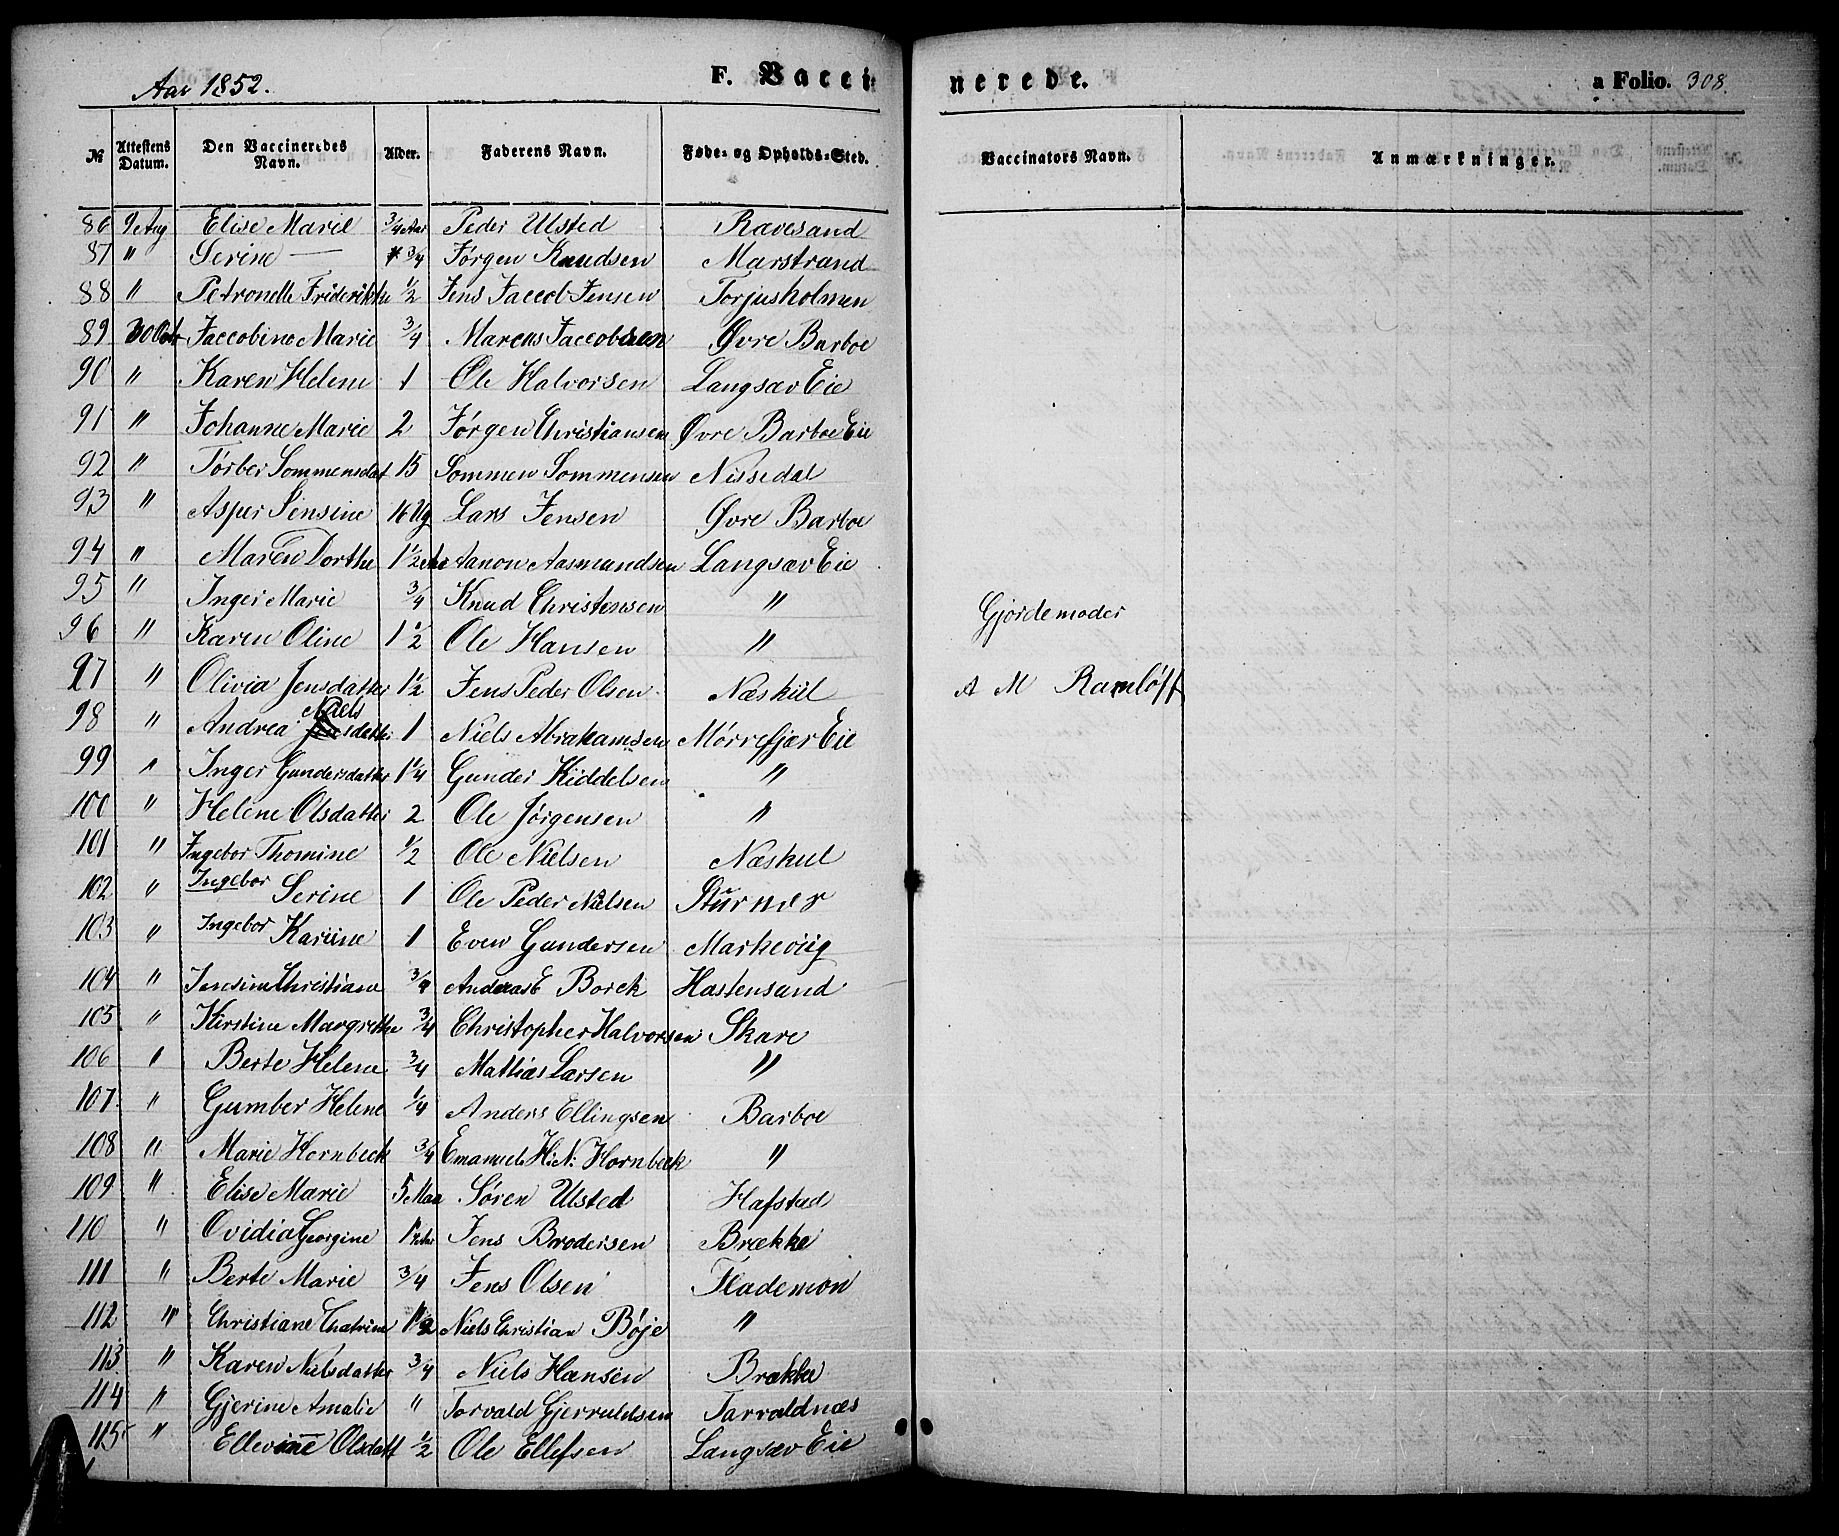 Aar 1852. F. Vaccinerede. a Folio. 308.
№ Attestens Datum. Den Vaccineredes Navn. Alder. Faderens Navn. Føde- og Opholds-Sted. Vaccinators Navn. Anmærkninger.
86 9 Aug Elise Marie 3/4 Aar Peder Ulsted Ravesand
87 " Serine — 3/4 Jørgen Knudsen Marstrand
88 " Petronelle Friderikke 1/2 Jens Jaccob Jensen Torjusholmen
89 30 Oct Jaccobine Marie 3/4 Marcus Jaccobsen Øvre Barboe
90 " Karen Helene 1 Ole Halvorsen Langsæv Eie
91 " Johanne Marie 2 Jørgen Christiansen Øvre Barboe Eie
92 " Tørber Sommensdat 15 Sommen Sommensen Nissedal
93 " Asper Jensine 16 Ug Lars Jensen Øvre Barboe
94 " Maren Dorthe 1 1/2 Aar Aanon Aasmundsen Langsæv Eie
95 " Inger Marie 3/4 Knud Christensen " Gjordemoder
96 " Karen Oline 1 1/2 Ole Hansen "
97 " Olivia Jensdatter 1 1/2 Jens Peder Olsen Næskiil A M Ramløff
98 " Andrea Nielsdatter 1 Niels Abrahamsen Mørrefjær Eie
99 " Inger Gundersdatter 1 1/4 Gunder Kiddelsen "
100 " Helene Olsdatter 2 Ole Jørgensen "
101 " Ingebor Thomine 1/2 Ole Nielsen Næskiil
102 " Ingebor Serine 1 Ole Peder Nielsen Sturnær
103 " Ingebor Karine 1 Even Gundersen Markeviig
104 " Jensine Christiane 3/4 Andreas E Borck Hastensund
105 " Kirstine Margrethe 3/4 Christopher Halvorsen Skare
106 " Berte Helene 3/4 Mathias Larsen "
107 " Gumber Helene 1/4 Anders Ellingsen Barboe
108 " Marie Hornbeck 3/4 Emanuel H: N: Hornbeck "
109 " Elise Marie 5 Maa Søren Ulsted Hafstad
110 " Ovidia Georgine Jens Brodersen Brække
111 " Berte Marie 3/4 Jens Olsen Flademon
112 " Christiane Chatrine 1 1/2 Niels Christian Bøje "
113 " Karen Nielsdatter 3/4 Niels Hansen Brække
114 " Gjerine Amalie " Torvald Gjerruldsen Tarvaldnæs
115 " Ellevine Olsdatt 1/2 Ole Ellefsen Langsæv Eie